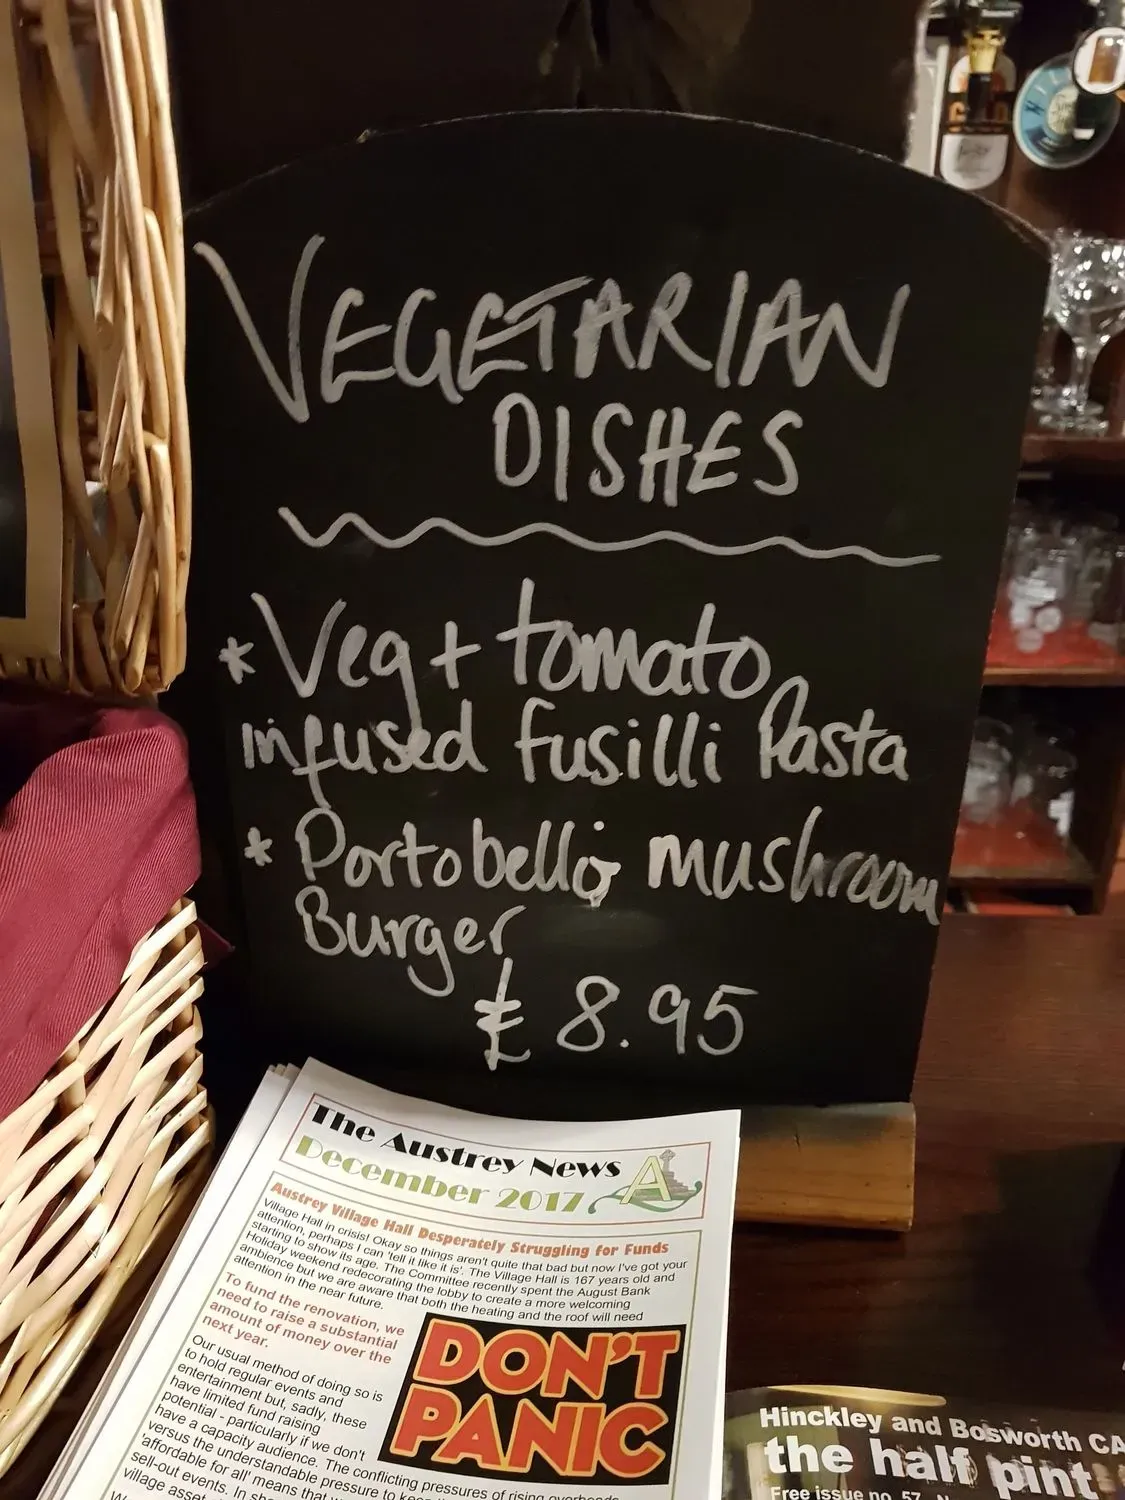 VEGETARIAN
DISHES
* Veg + tomato
infused fusilli Pasta
* Portobello mushroom
Burger
£ 8.95
The Austrey News
December 2017
A
Austrey Village Hall Desperately Struggling for Funds
Village Hall in crisis! Okay so things aren't quite that bad but now I've got your
attention, perhaps I can 'tell it like it is'. The Village Hall is 167 years old and
starting to show its age. The Committee recently spent the August Bank
Holiday weekend redecorating the lobby to create a more welcoming
ambience but we are aware that both the heating and the roof will need
attention in the near future.
To fund the renovation, we
need to raise a substantial
amount of money over the
next year.
DON'T
PANIC
Our usual method of doing so is
to hold regular events and
entertainment but, sadly, these
have limited fund raising
potential - particularly if we don't
have a capacity audience. The conflicting pressures of rising overheads
versus the understandable pressure to
'affordable for all' means that
sell-out events. In
village
Hinckley and Bosworth CA
the half pint
Free issue no. 57